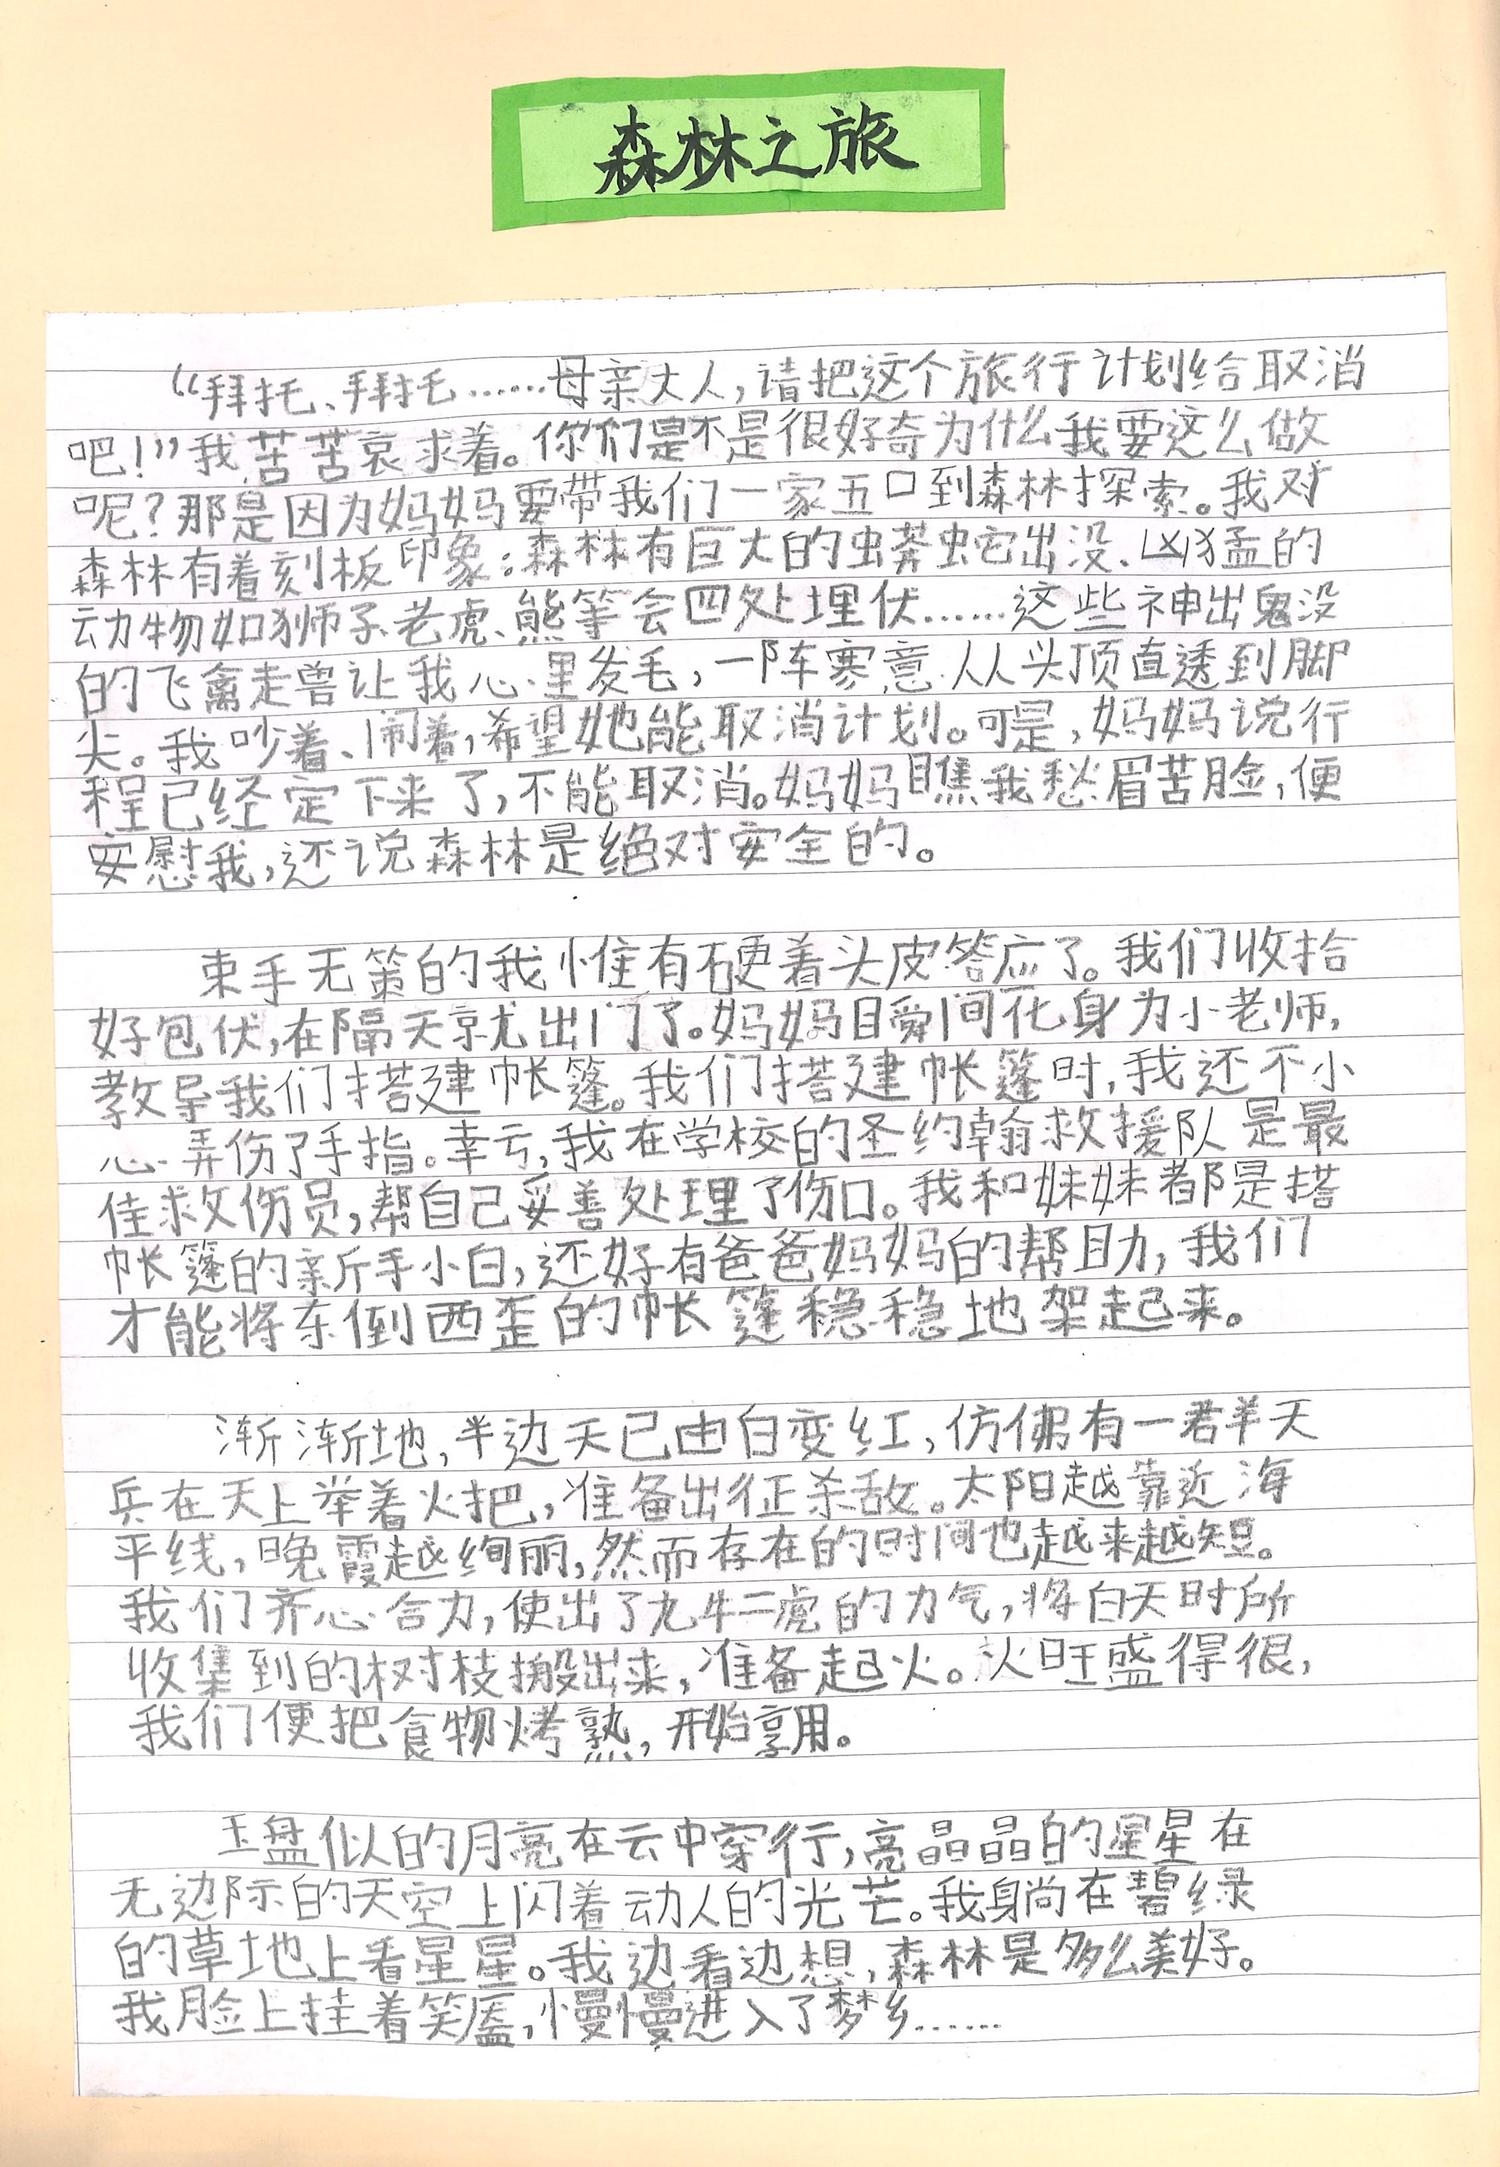 森林之旅
“拜托、拜托……母亲大人，请把这个旅行计划给取消
吧！”我苦苦哀求着。你们是不是很好奇为什么我要这么做
呢？那是因为妈妈要带我们一家五口到森林探索。我对
森林有着刻板印象：森林有巨大的蟒蛇出没、凶猛的
动物如狮子、老虎、熊等会四处埋伏……这些神出鬼没
的飞禽走兽让我心里发毛，一阵寒意从头顶直透到脚
尖。我吵着、闹着，希望她能取消计划。可是，妈妈说行
程已经定下来了，不能取消。妈妈瞧我愁眉苦脸，便
安慰我，还说森林是绝对安全的。
束手无策的我惟有硬着头皮答应了。我们收拾
好包伏，在隔天就出门了。妈妈瞬间化身为小老师，
教导我们搭建帐篷。我们搭建帐篷时，我还不小
心弄伤了手指。幸亏，我在学校的圣约翰救援队是最
佳救伤员，帮自己妥善处理了伤口。我和妹妹都是搭
帐篷的新手小白，还好有爸爸妈妈的帮助，我们
才能将东倒西歪的帐篷稳稳地架起来。
渐渐地，半边天已由白变红，仿佛有一群天
兵在天上举着火把，准备出征杀敌。太阳越靠近海
平线，晚霞越绚丽，然而存在的时间也越来越短。
我们齐心合力，使出了九牛二虎的力气，将白天时所
收集到的树枝搬出来，准备起火。火旺盛得很，
我们便把食物烤熟，开始享用。
玉盘似的月亮在云中穿行，亮晶晶的星星在
无边际的天空上闪着动人的光芒。我躺在碧绿
的草地上看星星。我边看边想，森林是多么美好。
我脸上挂着笑靥，慢慢进入了梦乡……